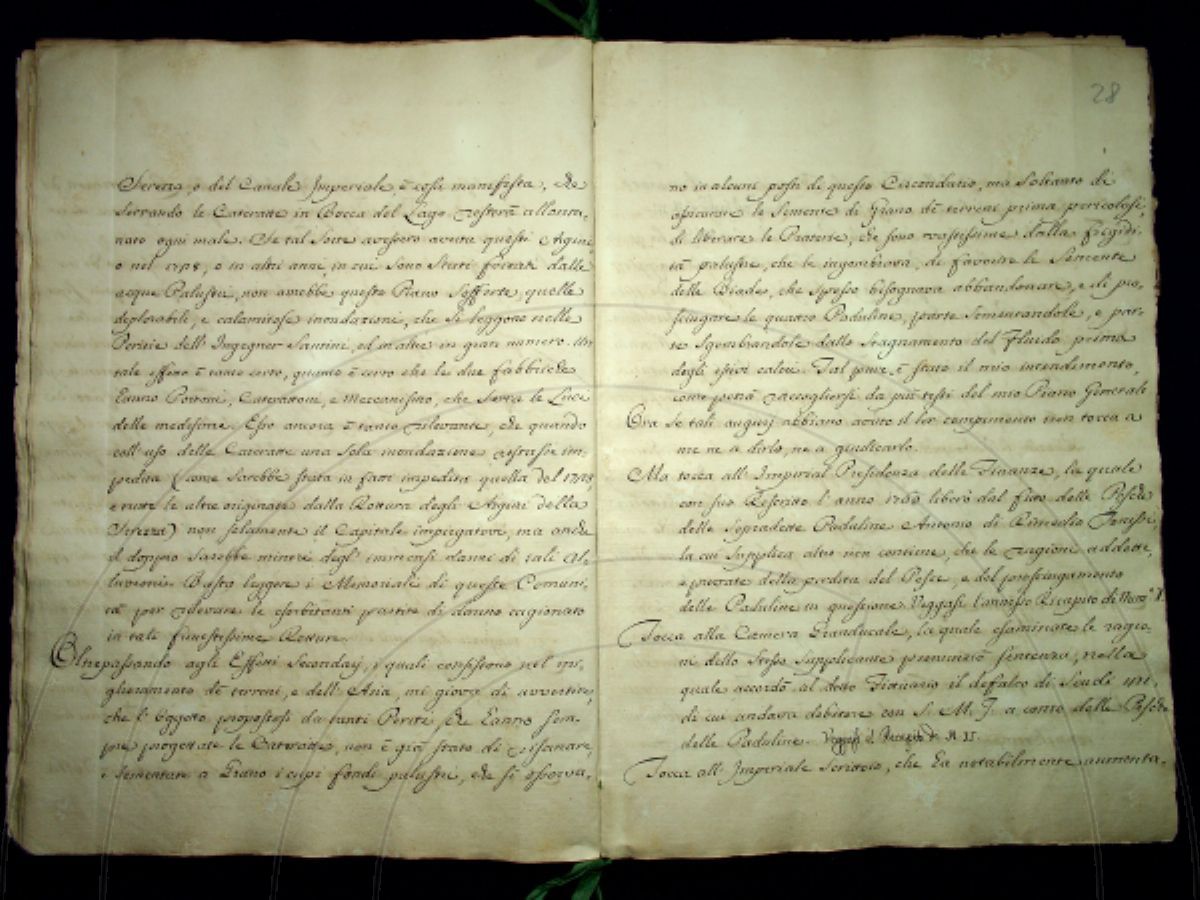 Serezza, o del Canale Imperiale è così manifesta, che
serrando le Cateratte in Bocca del Lago resterà allonta-
nato ogni male. Se tal sorte avessero avuta questi Argini
o nel 1718, o in altri anni, in cui sono stati forzati dalle
acque Palustri, non avrebbe questo Piano sofferte quelle
deplorabili, e calamitose inondazioni, che si leggono nelle
Perizie dell' Ingegner Santini, ed in altre in gran numero. Un
tale effetto è tanto certo, quanto è certo che le due fabbriche
hanno Portoni, Caterattoni, e Meccanismo, che serra le Luce
delle medesime. Esso ancora è tanto rilevante, che quando
coll' uso delle Cateratte una sola inondazione restasse im-
pedita (come sarebbe stata in fatti impedita quella del
e tutte le altre originate dalla Rottura degli Argini della
Serezza) non solamente il Capitale impiegatovi, ma anche
il doppio sarebbe minore degl' immensi danni di tali Al-
luvioni. Basta leggere i Memoriali di queste Comuni-
tà per rilevare le esorbitanti partite di danno cagionato
in tali funestissime Rotture.
Oltrepassando agli Effetti Secondarj, i quali consistono nel mi-
glioramento de' terreni, e dell' Aria, mi giova di avvertire,
che l' Oggetto propostosi da tanti Periti che hanno sem-
pre progettate le Cateratte, non è già stato di risanare,
e sementare a Grano i cupi fondi palustri, che si osserva-
28
no in alcuni posti di questo Circondario, ma soltanto di
assicurare le Semente di Grano de' terreni prima pericolosi,
di liberare le Praterie, che sono vastissime dalla frigidi-
tà palustre, che le ingombrava, di favorire le Semente
delle Biade, che spesso bisognava abbandonare, e di pro-
sciugare le quattro Paduline, parte sementandole, e par-
te sgombrandole dallo stagnamento del Fluido prima
degli estivi calori. Tal pure è stato il mio intendimento,
come potrà raccogliersi da più testi del mio Piano Generale
Ora se tali augurj abbiano avuto il lor compimento non tocca a
me nè a dirlo, nè a giudicarlo.
Ma tocca all' Imperial Presidenza delle Finanze, la quale
con suo Rescritto l' anno 1760 liberò dal fitto delle Pesche
delle sopradette Paduline Antonio di
la cui supplica altro non contiene, che le ragioni addotte,
e provate della perdita del Pesce, e del prosciugamento
delle Paduline in questione. Veggasi l'annesso Recapito di Num.º
Tocca alla Camera Granducale, la quale esaminate le ragio-
ni dello stesso Supplicante pronunziò sentenza, nella
quale accordò al detto Fittuario il defalco di Scudi
di cui andava debitore con S. M. I. a conto delle Pesche
delle Paduline. Veggasi il Recapito di N.
Tocca all' Imperiale Scrittoio, che ha notabilmente aumenta-